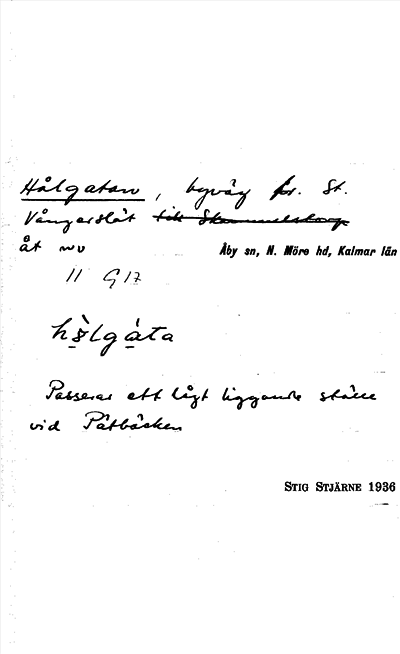 Hålgatan, byväg fr. St.
Vångerslät till Skammelstorp
åt nv Åby sn, N. Möre hd, Kalmar län
11 G 17
hålgàta
Passerar ett lågt liggande ställe
vid Påtbäcken
STIG STJÄRNE 1936